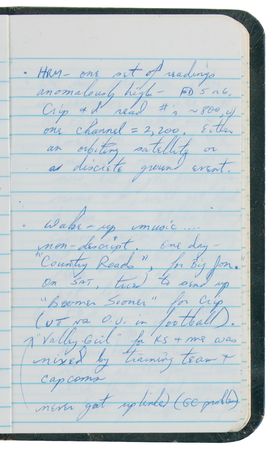 • HRM - one set of readings
anomalously high - FD 5 n6,
Crip + I read #'s ~800, w/
one channel = 2,200. Either
an orbiting satellite or
a discrete ground event.
• Wake-up music....
non-descript. One day -
"Country Roads", for Big Jon.
On Sat, tried to send up
"Boomer Sooner" for Crip
(UT vs O.U. in football).
"Valley Girl" for KS + me was
nixed by training team +
capcoms
never got uplinked (GC problem)